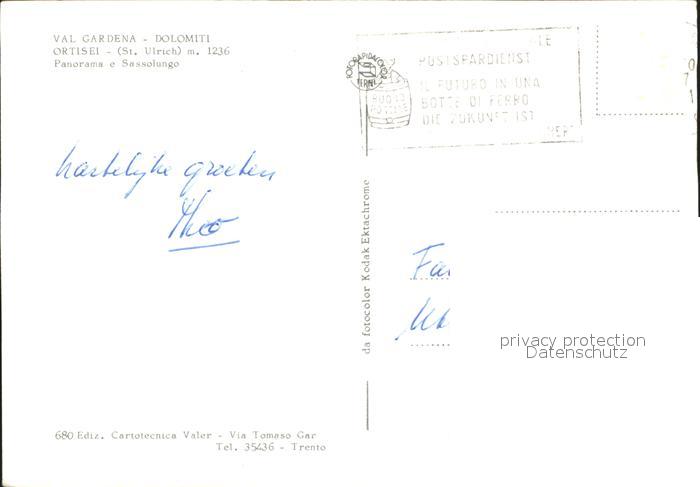 VAL GARDENA - DOLOMITI
ORTISEI - (St. Ulrich) m. 1236
Panorama e Sassolungo
POSTSPARDIENST
IL FUTURO IN UNA
BOTTE DI FERRO
DIE ZUKUNFT IST
FOTORAPIDACOLOR
TERNI
hartelijke groeten
Theo
da fotocolor Kodak Ektachrome
Fa
privacy protection
Datenschutz
680 Ediz. Cartotecnica Valer - Via Tomaso Gar
Tel. 35436 - Trento